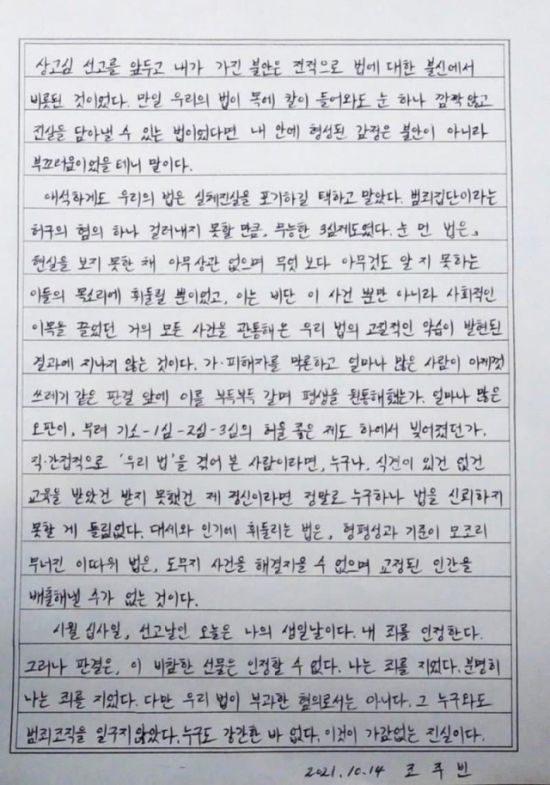 상고심 선고를 앞두고 내가 가진 불안은 전적으로 법에 대한 불신에서
비롯된 것이었다. 만일 우리의 법이 목에 칼이 들어와도 눈 하나 깜짝 않고
진실을 담아낼 수 있는 법이었다면 내 안에 형성된 감정은 불안이 아니라
부끄러움이었을 테니 말이다.
애석하게도 우리의 법은 실체진실을 포기하길 택하고 말았다. 범죄집단이라는
허구의 혐의 하나 걸러내지 못할 만큼, 무능한 3심제도였다. 눈 먼 법은,
현실을 보지 못한 채 아무상관 없으며 무엇 보다 아무것도 알 지 못하는
이들의 목소리에 휘둘릴 뿐이었고, 이는 비단 이 사건 뿐만 아니라 사회적인
이목을 끌었던 거의 모든 사건을 관통해온 우리 법의 고질적인 악습이 발현된
결과에 지나지 않는 것이다. 가·피해자를 막론하고 얼마나 많은 사람이 여지껏
쓰레기 같은 판결 앞에 이를 부득부득 갈며 평생을 원통해했는가. 얼마나 많은
오판이, 무려 기소-1심-2심-3심의 허울 좋은 제도 하에서 빚어졌던가.
직·간접적으로 '우리 법'을 겪어 본 사람이라면, 누구나, 식견이 있건 없건
교육을 받았건 받지 못했건 제 정신이라면 정말로 누구하나 법을 신뢰하지
못할 게 틀림없다. 대세와 인기에 휘둘리는 법은, 형평성과 기준이 모조리
무너진 이따위 법은, 도무지 사건을 해결지을 수 없으며 교정된 인간을
배출해낼 수가 없는 것이다.
시월 십사일, 선고날인 오늘은 나의 생일날이다. 내 죄를 인정한다.
그러나 판결은, 이 비참한 선물은 인정할 수 없다. 나는 죄를 지었다. 분명히
나는 죄를 지었다. 다만 우리 법이 부과한 혐의로서는 아니다. 그 누구와도
범죄조직을 일구지 않았다. 누구도 강간한 바 없다. 이것이 가감없는 진실이다.
2021. 10. 14 조 주 빈